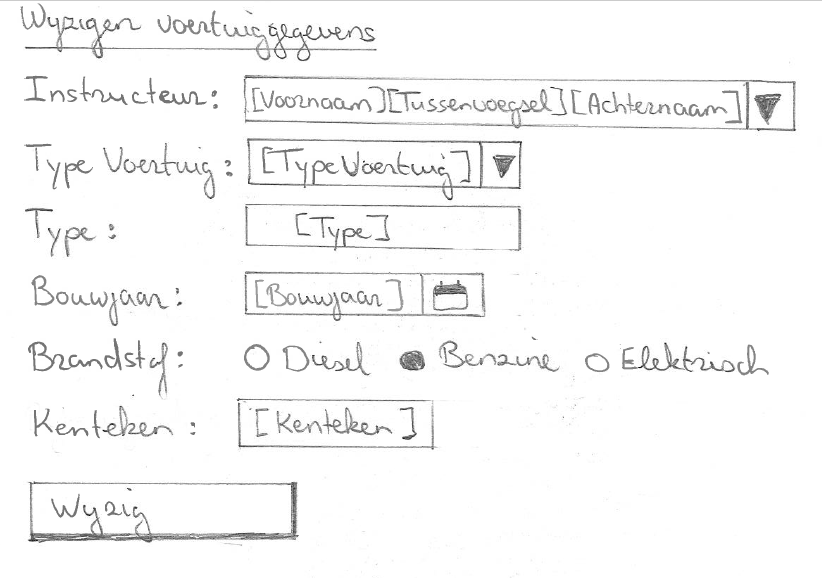 Wyzigen voertuiggegevens
Instructeur: [Voornaam][Tussenvoegsel][Achternaam]
Type Voertuig: [TypeVoertuig]
Type: [Type]
Bouwjaar: [Bouwjaar]
Brandstof: Diesel Benzine Elektrisch
Kenteken: [Kenteken]
Wyzig